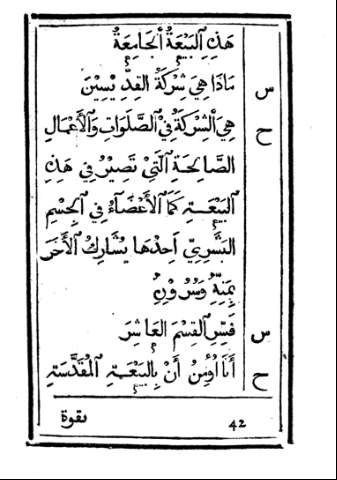 هَذِهِ اَلبَيْعَةُ اَلجَامِعَةُ
س مَاذَا هِيَ شِرْكَةُ القِدِّيْسِيْنَ
ح هِيَ اَلشِرْكَةُ فِيْ اَلصَّلَوَاتِ وَاَلْأَعْمَالِ
الصَّالِحَةِ اَلَّتِيْ تَصِيْرُ فِي هَذِهِ
اَلبَيْعَةِ كَمَا اَلْأَعْضَآءُ فِي اَلجِسْمِ
البَشَرِيِّ اَحِدْهَا يُشَارِكُ اَلْأَخَرَ
بِمَنِيَّةٍ وَسُرُوْرٍ
س فَسِّرِ اَلقِسْمَ العَاشِرَ
ح أَنَا اُؤْمِنُ أَنْ بِالبَيْعَةِ اَلمُقَدَّسَةِ
42 بقوة